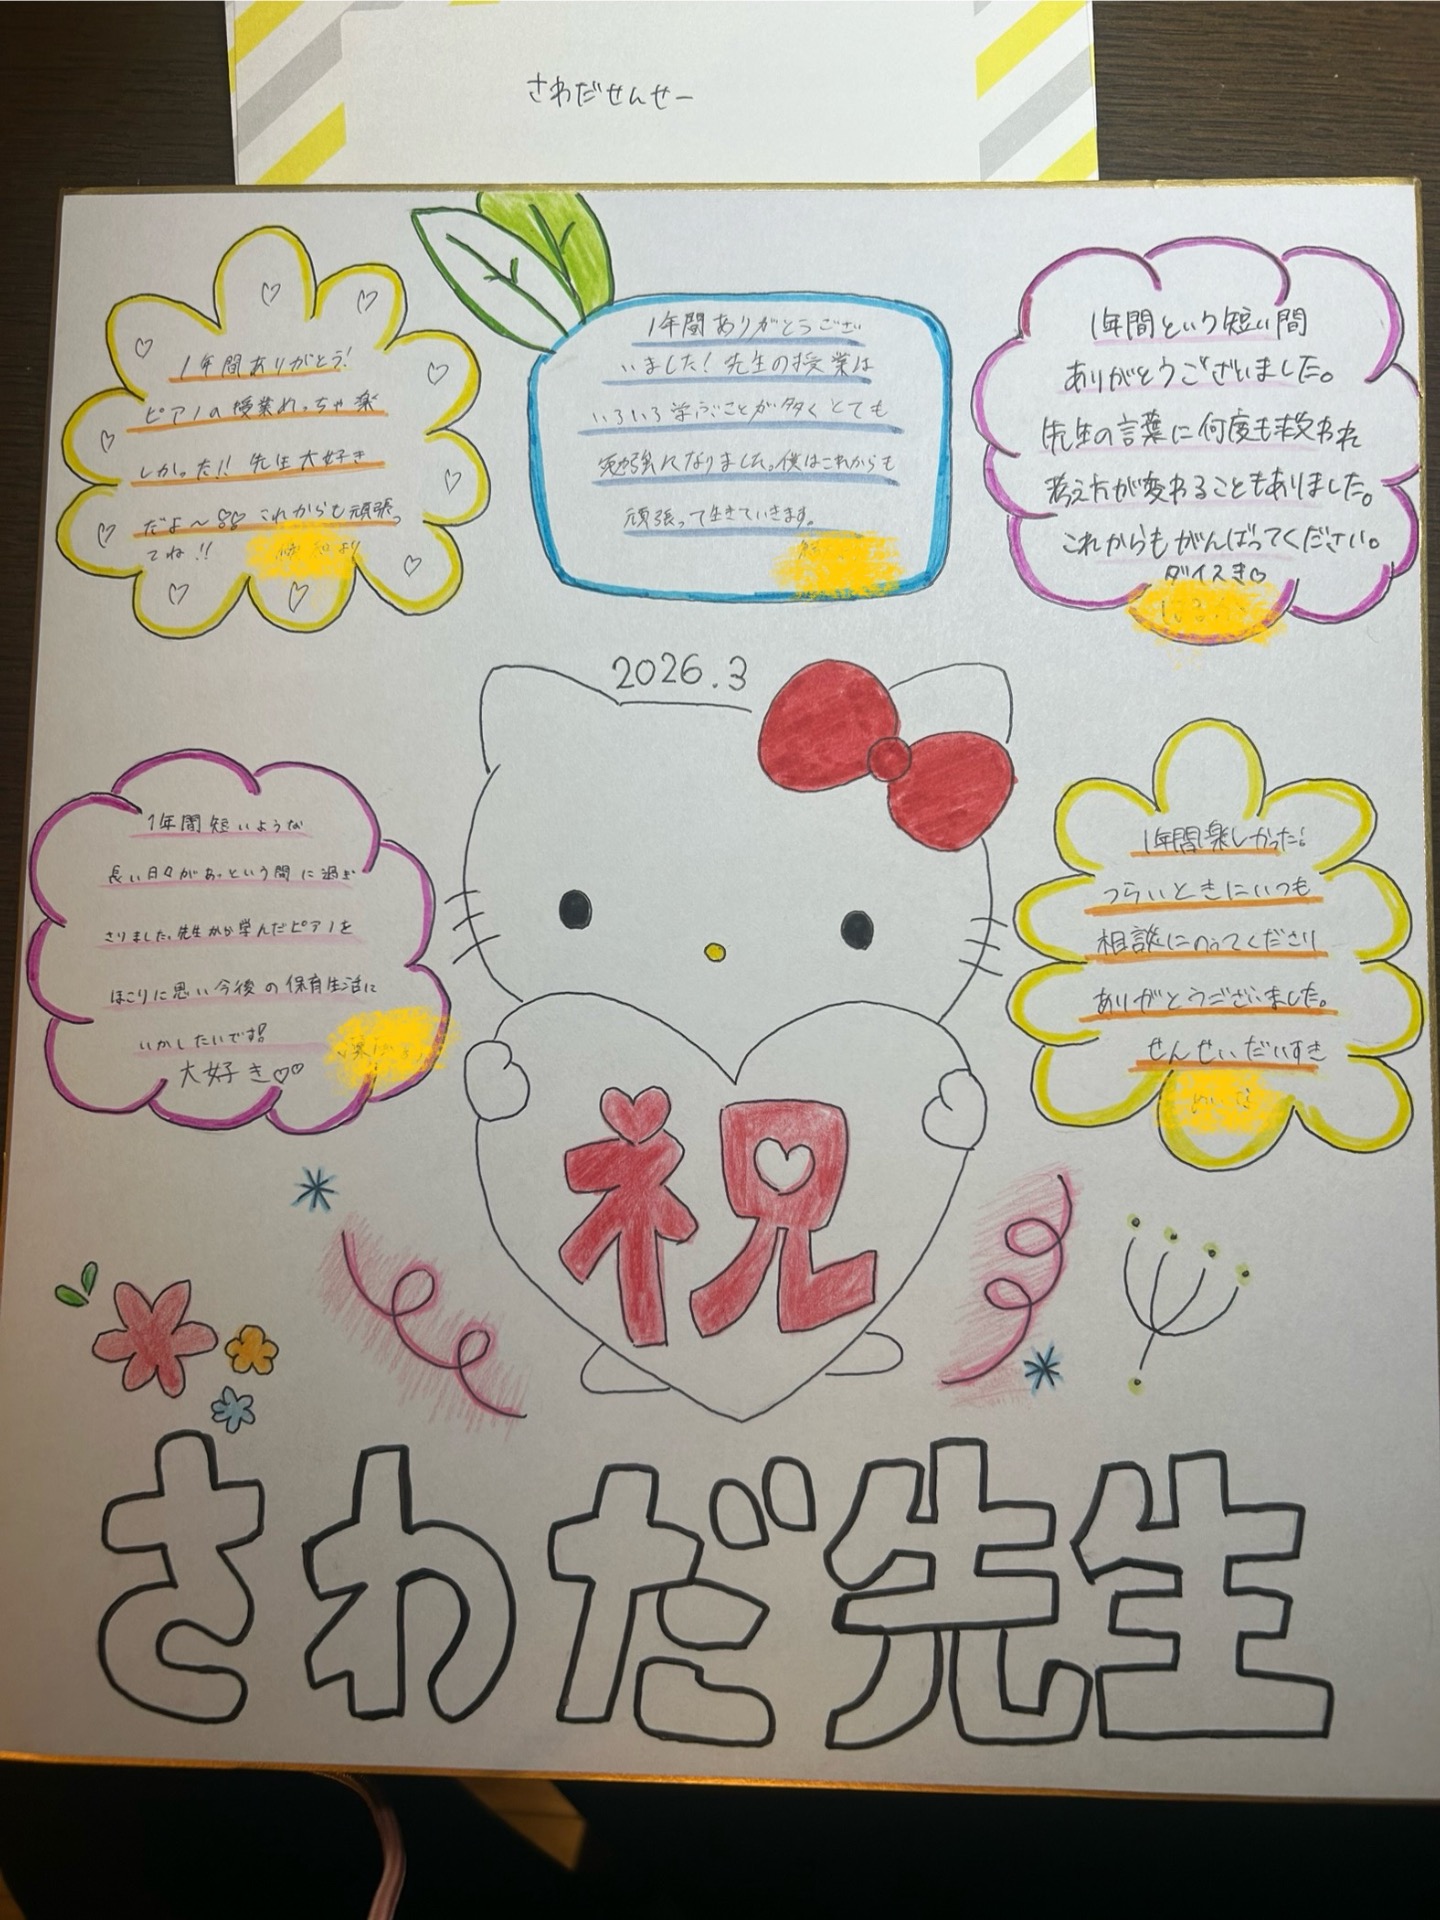 さわだせんせー
1年間ありがとう!
ピアノの授業めっちゃ楽
しかった!! 先生大好き
だよ〜♡♡ これからも頑張っ
てね!!
より
1年間ありがとうござい
いました! 先生の授業は
いろいろ学ぶことが多くとても
勉強になりました。僕はこれからも
頑張って生きていきます。
1年間という短い間
ありがとうございました。
先生の言葉に何度も救われ
考え方が変わることもありました。
これからもがんばってください。
ダイスき♡
2026.3
1年間短いような
長い日々があっという間に過ぎ
さりました。先生から学んだピアノを
ほこりに思い今後の保育生活に
いかしたいです!
大好き♡♡
1年間楽しかった!
つらいときにいつも
相談にのってくださり
ありがとうございました。
せんせいだいすき
祝
さわだ先生